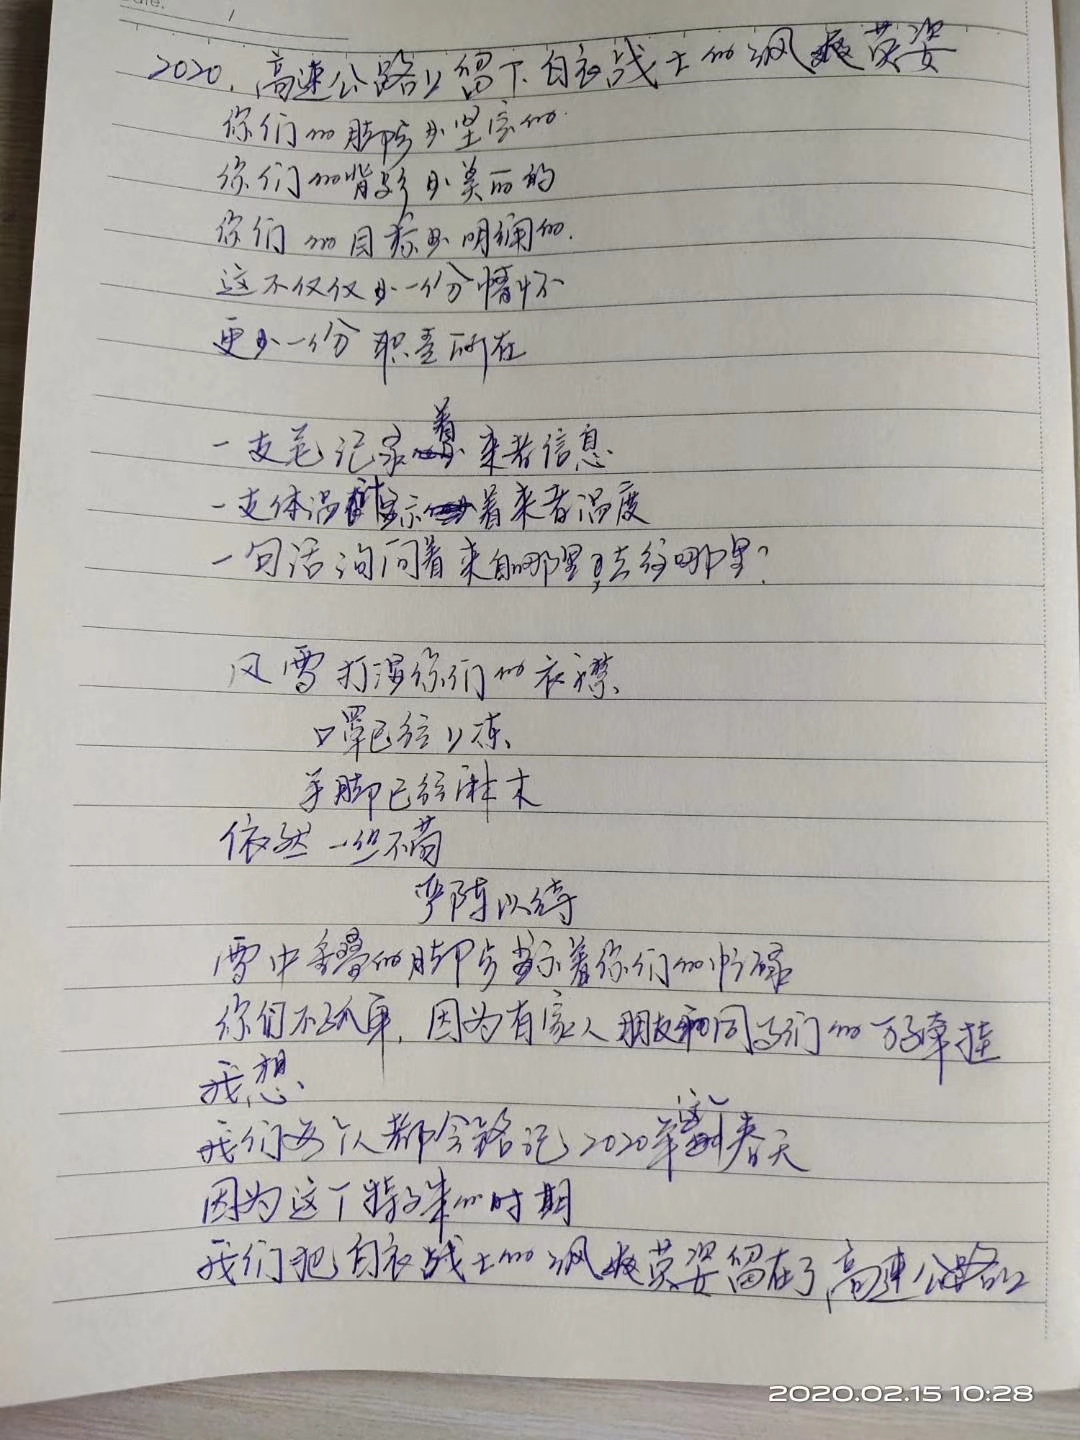 Date. 1
2020.高速公路上留下白衣战士的飒爽英姿
你们的脚步是坚定的.
你们的背影是美丽的
你们的目标是明确的.
这不仅仅是一份情怀
更是一份职责所在
一支笔记录着来者信息
一支体温计显示着来者温度
一句话询问着来自哪里,去往哪里?
风雪打湿你们的衣襟、
口罩已经上冻、
手脚已经麻木
依然一丝不苟
严阵以待
雪中重叠的脚步显示着你们的忙碌
你们不孤单,因为有家人朋友和同事们的牵挂
我想、
我们每个人都会铭记2020年这个春天
因为这个特殊的时期
我们把白衣战士的飒爽英姿留在了高速公路上
2020.02.15 10:28